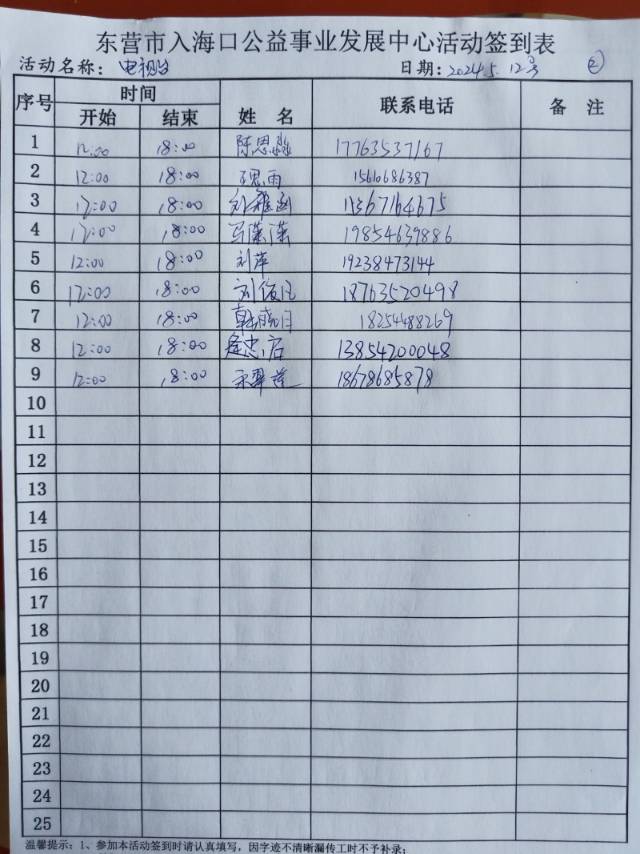 东营市入海口公益事业发展中心活动签到表
活动名称：电视台 日期：2024 5. 12号 ②
序号 时间 姓名 联系电话 备注
开始 结束
1 12:00 18:00 陈恩淼 17763537167
2 12:00 18:00 雨 15610686387
3 12:00 18:00 刘 15367164675
4 12:00 18:00 马潇潇 19854639886
5 12:00 18:00 刘萍 19238473144
6 12:00 18:00 刘 18763520498
7 12:00 18:00 韩晓月 18254488269
8 12:00 18:00 13854200048
9 12:00 18:00 18678685878
10
11
12
13
14
15
16
17
18
19
20
21
22
23
24
25
温馨提示：1、参加本活动签到时请认真填写，因字迹不清晰漏传工时不予补录；